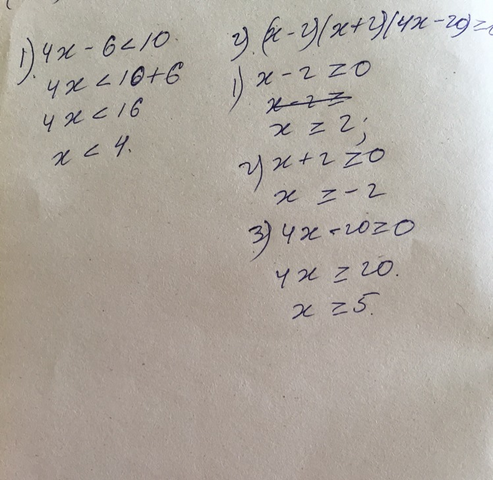 1) 4x - 6 < 10
4x < 10 + 6
4x < 16
x < 4.
2) (x-2)(x+2)(4x-20) ≥ 0
1) x - 2 ≥ 0
x - 2 ≥
x ≥ 2;
2) x + 2 ≥ 0
x ≥ -2
3) 4x - 20 ≥ 0
4x ≥ 20.
x ≥ 5.